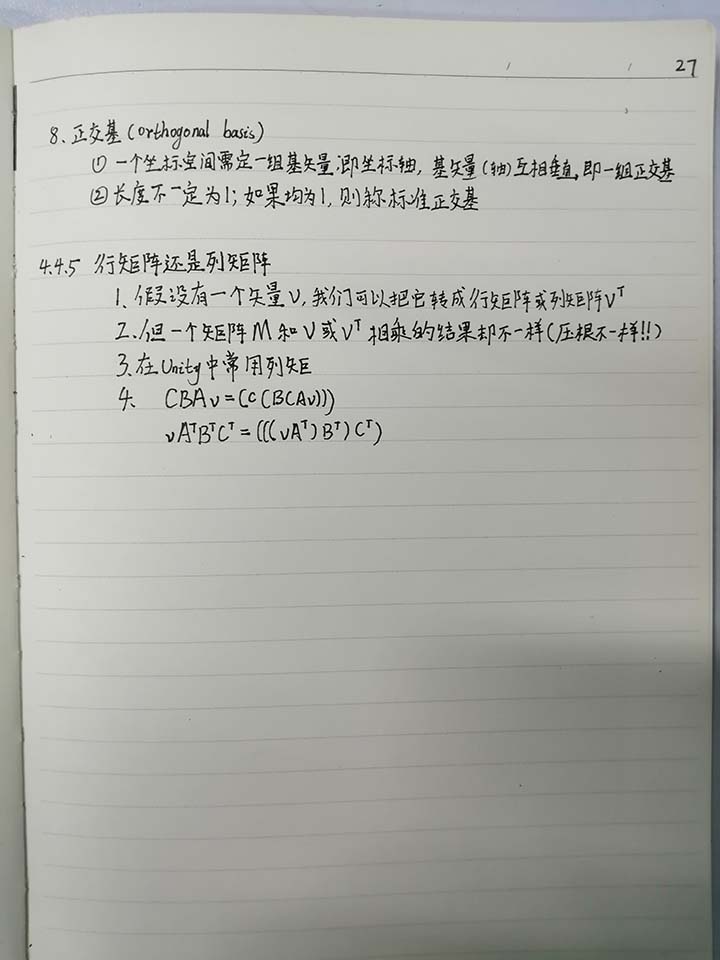 27
8、正交基(orthogonal basis)
① 一个坐标空间需定一组基矢量,即坐标轴,基矢量(轴)互相垂直,即一组正交基
② 长度不一定为1;如果均为1,则称标准正交基
4.4.5 行矩阵还是列矩阵
1、假设有一个矢量v,我们可以把它转成行矩阵或列矩阵vᵀ
2、但一个矩阵M和v或vᵀ相乘的结果却不一样(压根不一样!!)
3、在Unity中常用列矩
4、 CBAv=(C(B(Av)))
vAᵀBᵀCᵀ=(((vAᵀ)Bᵀ)Cᵀ)